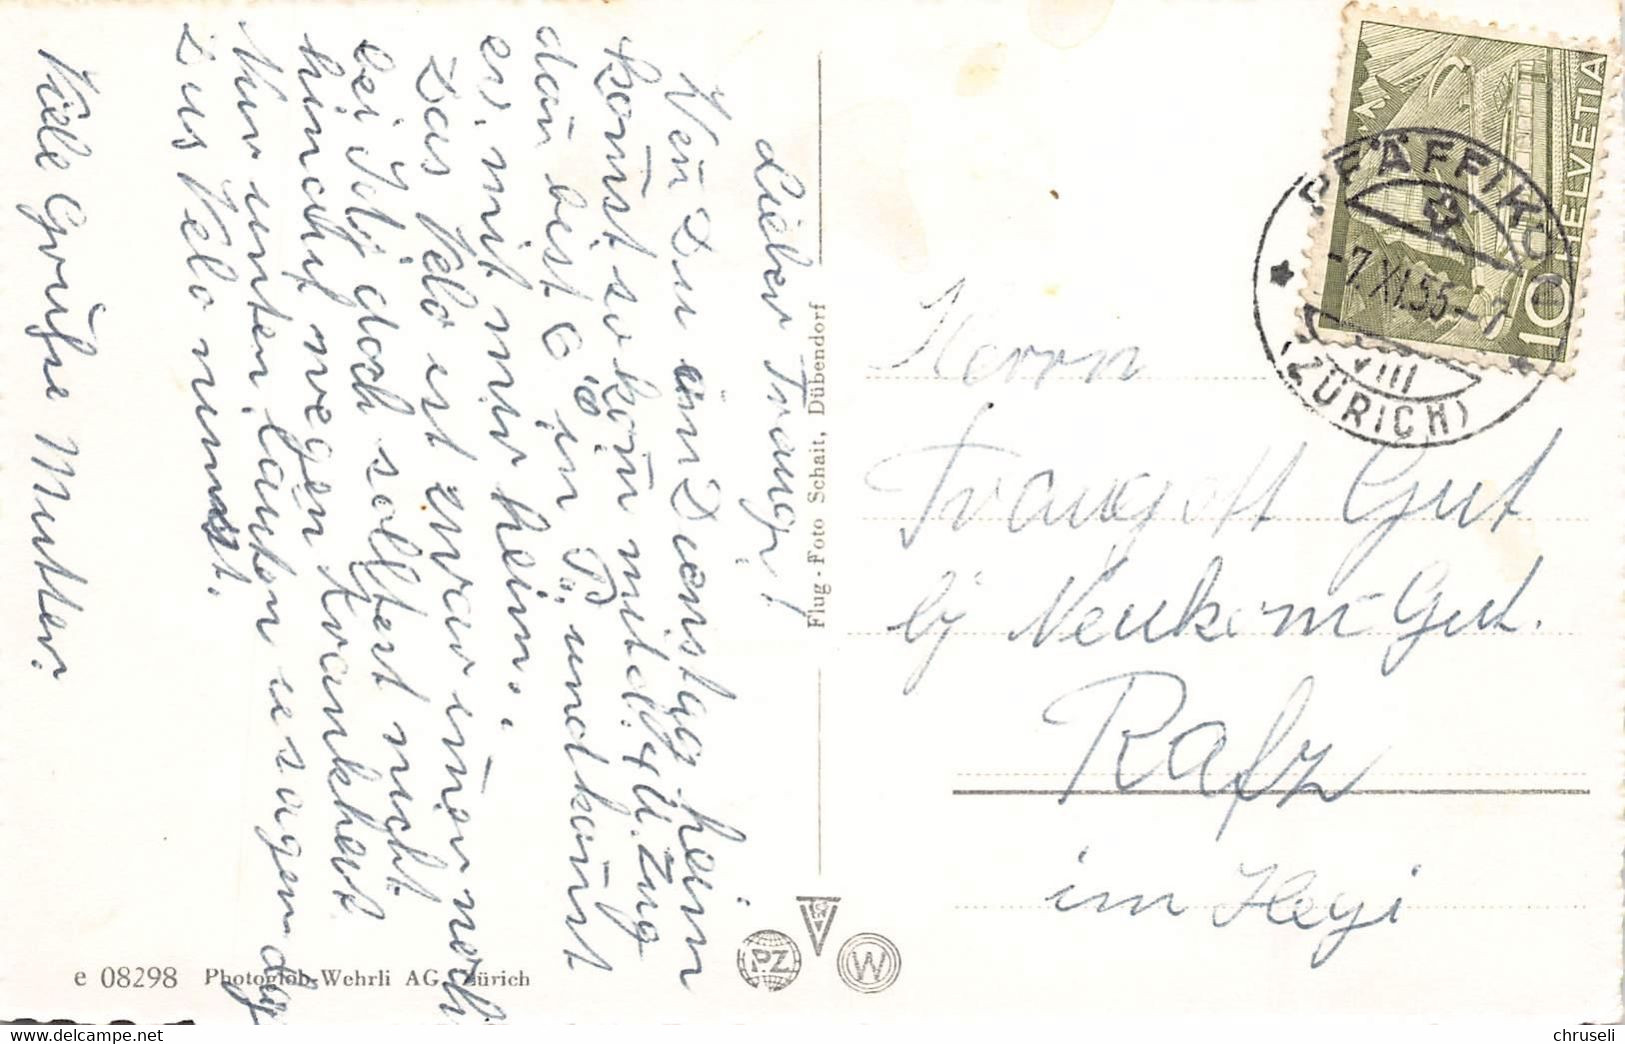 Lieber Traugi!
Wen Du am Dienstag heim
komst so kom mit d. 4 U. Zug
dan bist 6 in P. und kanst
ev. mit mir heim.
Das Velo ist zwar imer noch
bei Itg doch solltest nicht
hinauf wegen Krankheit
Nur unten lauten u sagen dß
Dus Velo nimmst.
Viele Grüsse Mutter.
Flug-Foto Schait, Dübendorf
e 08298 Photoglob-Wehrli AG, Zürich
P.Z
W
HELVETIA
10
PFÄFFIKON
-7.XI.55-
VIII
(ZÜRICH)
Herrn
Traugott Gut
bj Neukom-Gut.
Rafz
im Hegi
chruseli